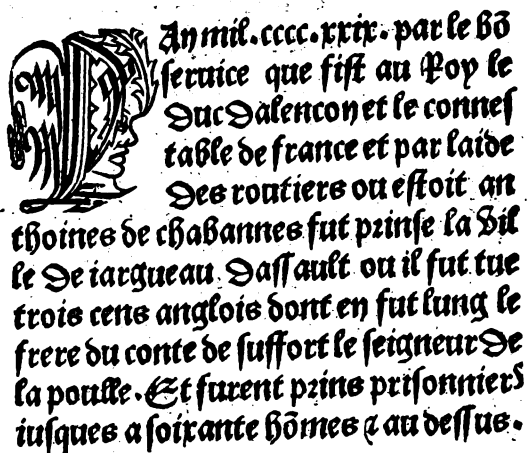 LAn mil.cccc.xxix. par le bõ
seruice que fist au Roy le
Duc Dalencon et le connes
table de france et par laide
Des routiers ou estoit an
thoines de chabannes fut prinse la vil
le De iargueau Dassault ou il fut tue
trois cens anglois dont en fut lung le
frere du conte de suffort le seigneur De
la poulle. Et furent prins prisonniers
iusques a soixante hõmes ⁊ au dessus.